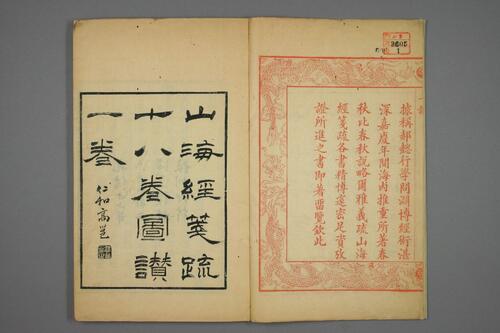 據稱郝懿行學問淵博經術湛
深嘉慶年間海內推重所著春
秋比春秋說略爾雅義疏山海
經箋疏各書精博邃密足資攷
證所進之書即著留覽欽此
山海經箋疏
十八卷圖讃
一卷
仁和高邕